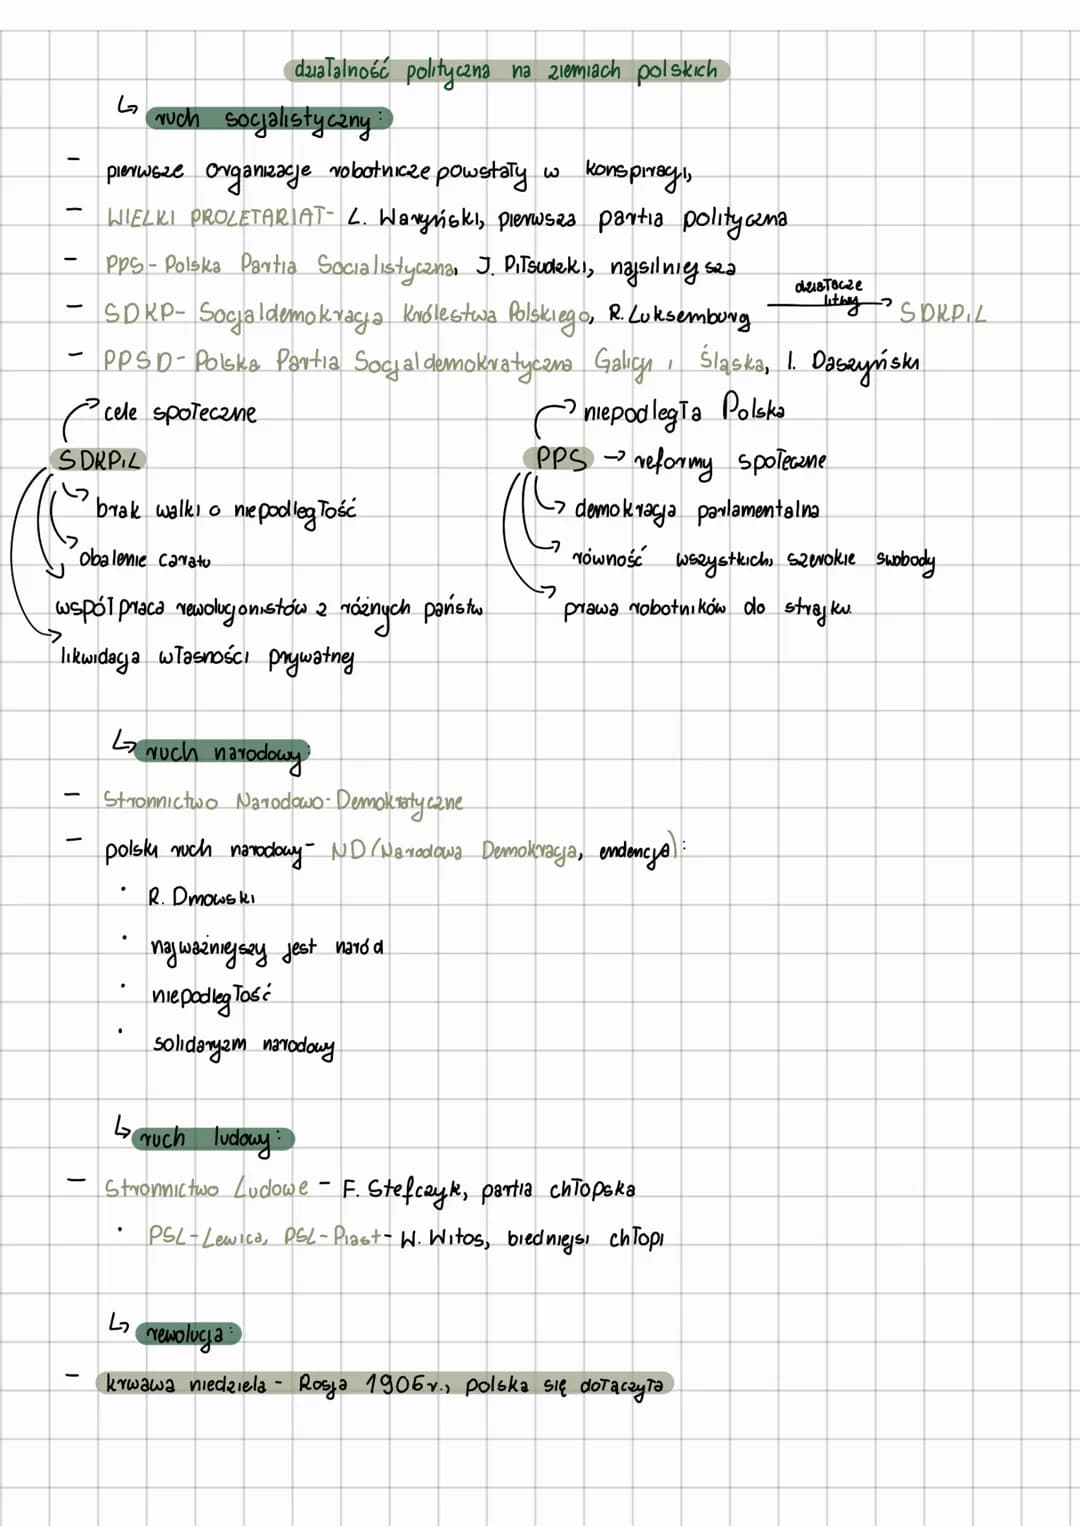 działalność polityczna na ziemiach polskich
↳ ruch socjalistyczny:
- pierwsze organizacje robotnicze powstały w konspiracji,
- WIELKI PROLETARIAT- L. Waryński, pierwsza partia polityczna
- PPS - Polska Partia Socialistyczna, J. Piłsudzki, najsilniejsza
- SDKP- Socjaldemokracja Królestwa Polskiego, R. Luksemburg działacze litwy → SDKPiL
- PPSD - Polska Partia Socjaldemokratyczna Galicji i Śląska, I. Daszyński
cele społeczne
niepodległa Polska
SDKPiL
PPS → reformy społeczne
brak walki o niepodległość
demokracja parlamentalna
obalenie caratu
równość wszystkich, szerokie swobody
współpraca rewolucjonistów z różnych państw
prawa robotników do strajku
likwidacja własności prywatnej
↳ ruch narodowy:
- Stronnictwo Narodowo-Demokratyczne
- polski ruch narodowy- ND (Narodowa Demokracja, endencja):
• R. Dmowski
• najważniejszy jest naród
• niepodległość
• solidaryzm narodowy
↳ ruch ludowy:
- Stronnictwo Ludowe - F. Stefczyk, partia chłopska
• PSL-Lewica, PSL-Piast- W. Witos, biedniejsi chłopi
↳ rewolucja:
- krwawa niedziela - Rosja 1905r., polska się dołączyła